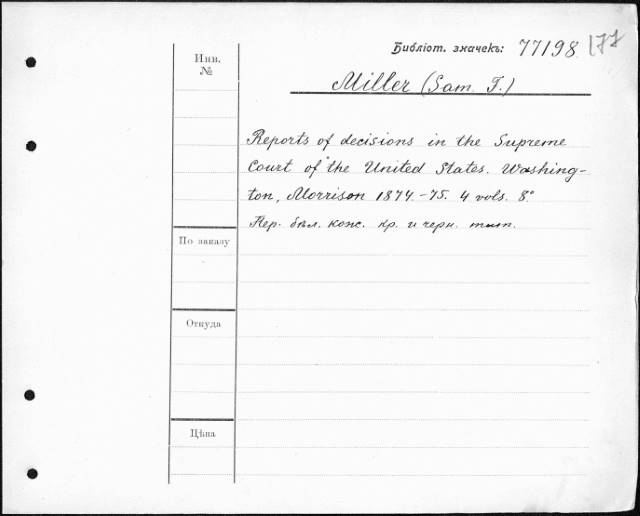 Библіот. значекъ: 77198 177
Инв.
№
Miller (Sam. F.)
Reports of decisions in the Supreme
Court of the United States. Washing-
ton, Morrison 1874.-75. 4 vols. 8°
Пер. бѣл. кожс. кр. и черн. тит.
По заказу
Откуда
Цѣна